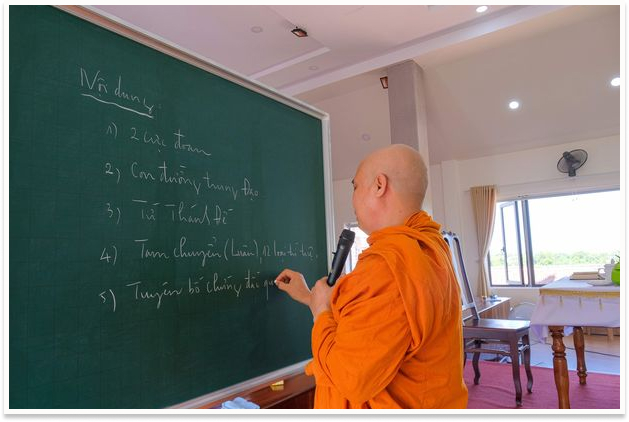 Nội dung
1) 2 cực đoan
2) Con đường trung đạo
3) Tứ Thánh Đế
4) Tam chuyển (Luân), 12 loại trí tuệ.
5) Tuyên bố chứng đắc qu